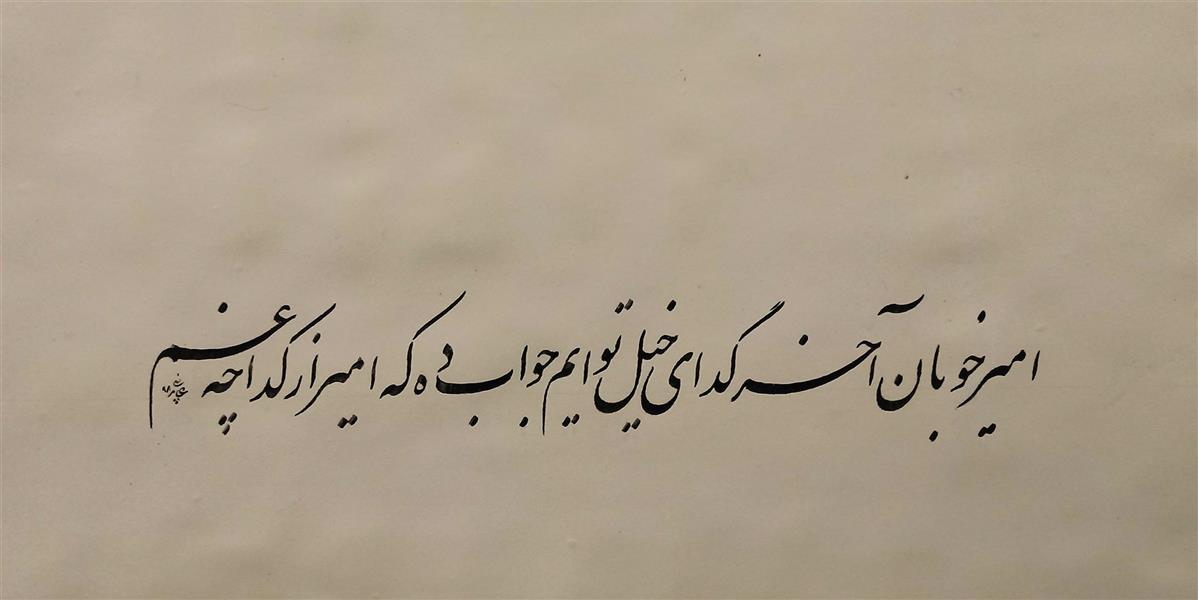 امیر خوبان آخر گدای خیل توایم جواب ده که امیر از گدا چه غم